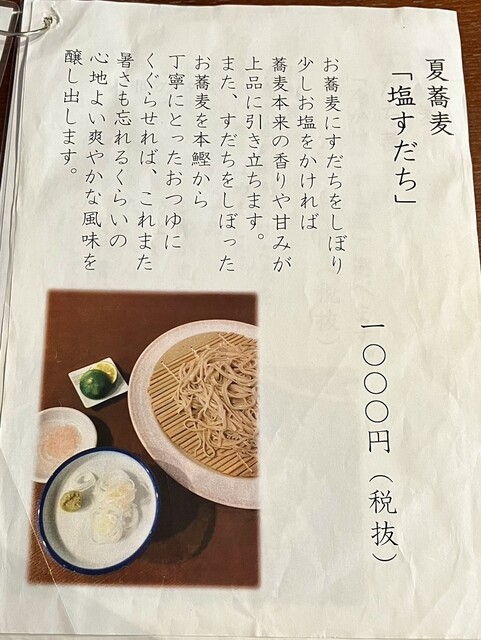 夏蕎麦
「塩すだち」
お蕎麦にすだちをしぼり
少しお塩をかければ
蕎麦本来の香りや甘みが
上品に引き立ちます。
また、すだちをしぼった
お蕎麦を本鰹から
丁寧にとったおつゆに
くぐらせれば、これまた
暑さも忘れるくらいの
心地よい爽やかな風味を
醸し出します。
一〇〇〇円(税抜)